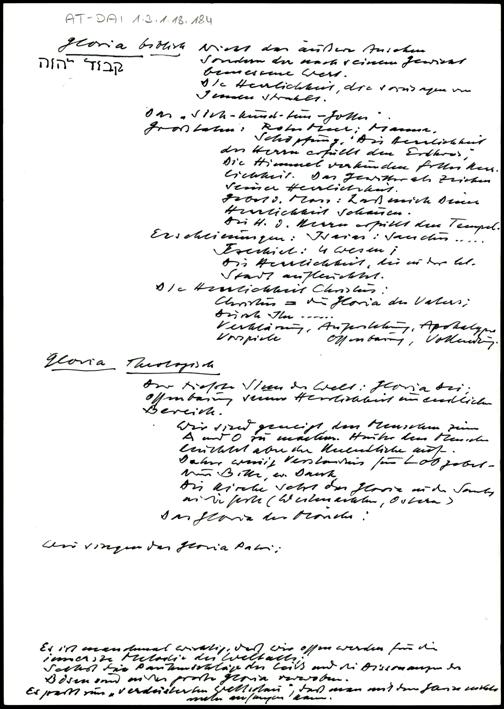 AT-DAI 1.3.1.18.184
Gloria biblisch Nicht das äußere Ansehen
קבוד יהוה sondern der nach seinem Gewicht
bemessene Wert.
Die Herrlichkeit, die sozusagen von
Innen strahlt.
Das „Sich-kund-tun-Gottes".
Großtaten: Rotes Meer; Manna.
Schöpfung: Die Herrlichkeit
des Herrn erfüllt den Erdkreis,
Die Himmel verkünden Gottes Herr-
lichkeit. Das Gewitter als Zeichen
seiner Herrlichkeit.
Gebet d. Moses: Laß mich Deine
Herrlichkeit schauen.
Die H. d. Herrn erfüllt den Tempel.
Erscheinungen: Isaias: Sanctus .....
Ezechiel: 4 Wesen;
Die Herrlichkeit, die in der hl.
Stadt aufleuchtet.
Die Herrlichkeit Christus:
Christus = die Gloria des Vaters;
Durch Ihn .....
Verklärung, Auferstehung, Apokalypse
Vorspiele Offenbarung, Vollendung.
Gloria Theologisch
Der tiefste Sinn der Welt: Gloria Dei;
Offenbarung seiner Herrlichkeit im endlichen
Bereich.
Wir sind geneigt den Menschen zum
A und O zu machen. Hinter dem Menschen
leuchtet aber der Unendliche auf.
Daher wenig Verständnis für Lobgebet -
Nur Bitte, u. Dank
Die Kirche setzt das Gloria in die
in die Feste (Weihnachten, Ostern)
Das Gloria der Mönche!
Wir singen das Gloria Patri;
Es ist manchmal wichtig, daß wir offen werden für die
innerste Melodie des Weltalls;
Selbst die Paukenschläge des Leids und die Dissonanzen des
Bösen sind in das große Gloria verwoben.
Es paßt zur „verdüsterten Weltschau", daß man mit dem Gloria nichts
mehr anfangen kann.